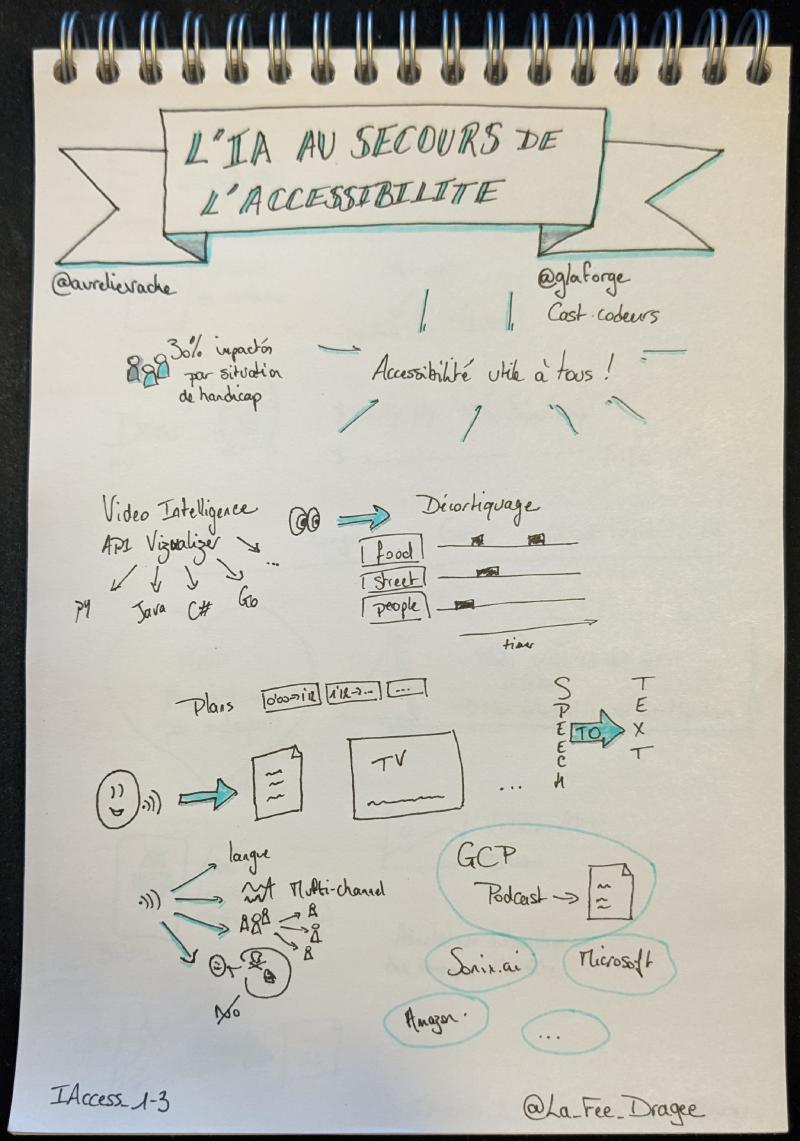 L'IA AU SECOURS DE
L'ACCESSIBILITE
@aurelievache
@glaforge
Cast-codeurs
30% impactés
par situation
de handicap
Accessibilité utile à tous !
Video Intelligence
API Vizualizer
...
PY
Java
C#
Go
Décortiquage
food
street
people
time
Plans
0'00→1'12
1'12→...
...
SPEECH
TO
TEXT
TV
...
langue
Multi-channel
GCP
Podcast →
Sonix.ai
Microsoft
Amazon
...
IAccess_1-3
@La_Fee_Dragee